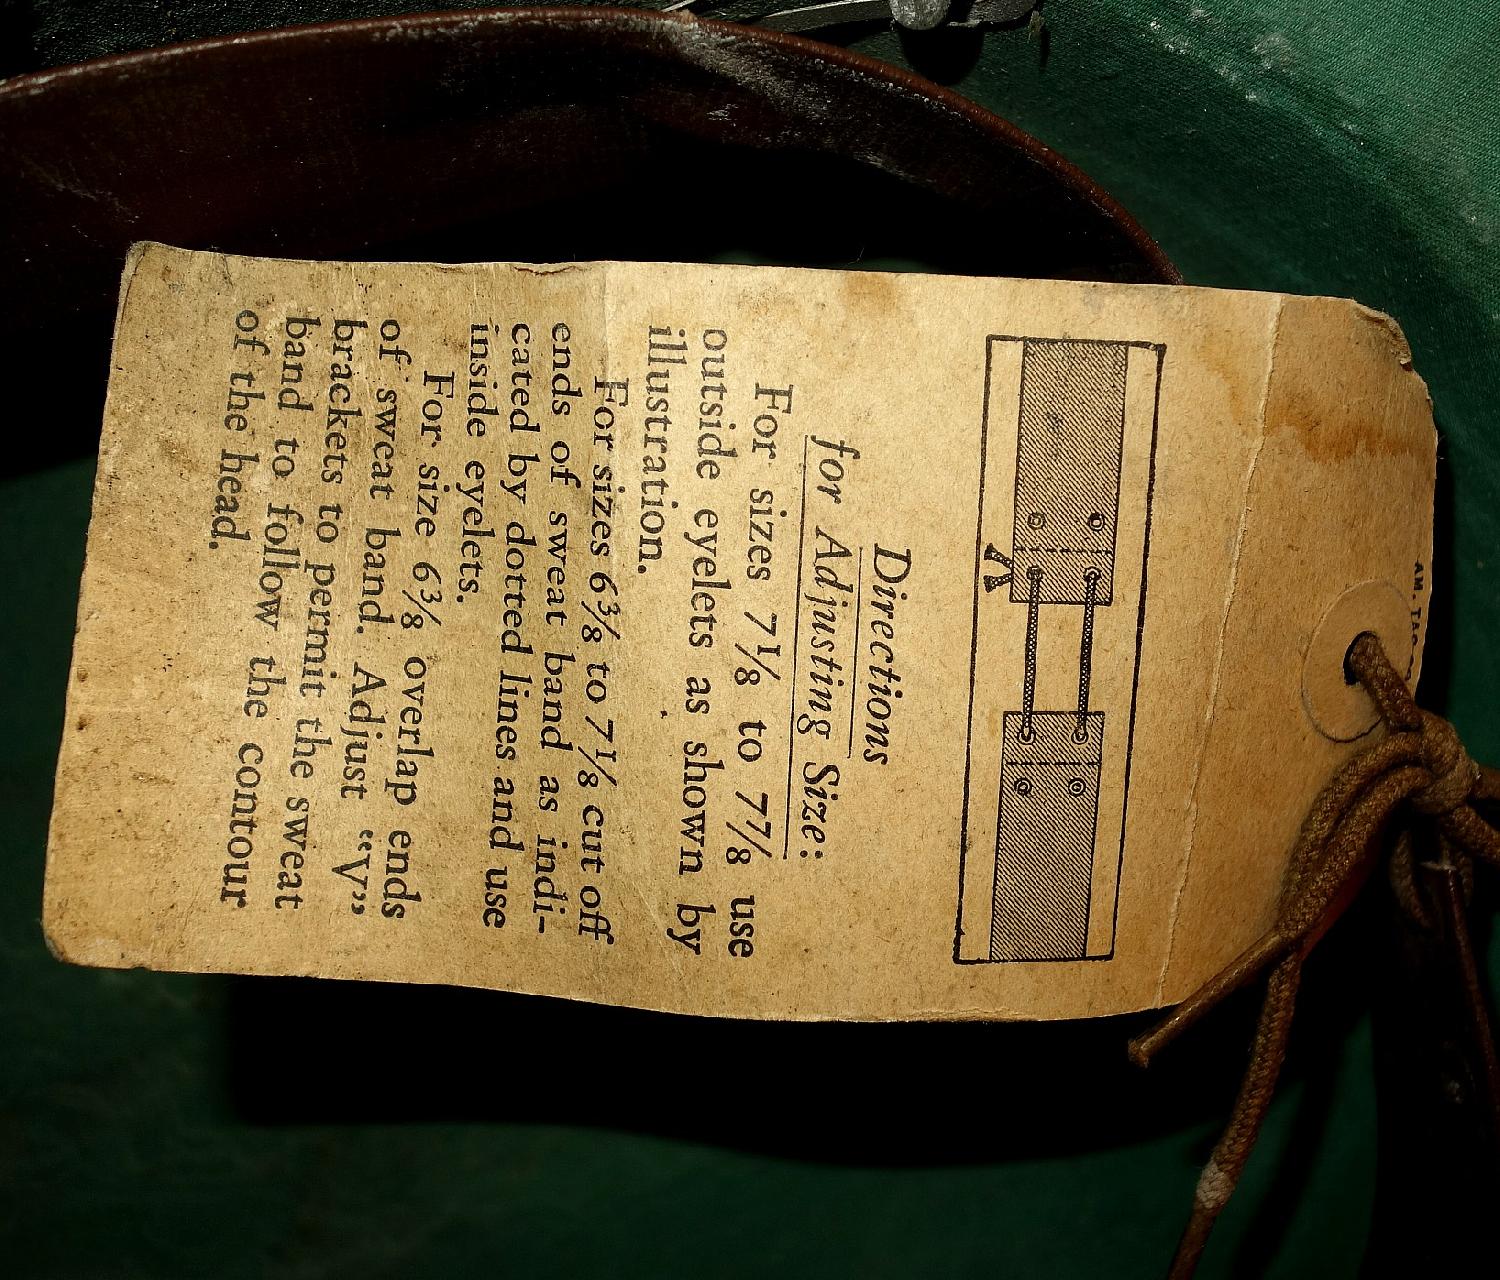 AM. TAG
Directions
for Adjusting Size:
For sizes 7⅛ to 7⅞ use
outside eyelets as shown by
illustration.
For sizes 6⅜ to 7⅛ cut off
ends of sweat band as indi-
cated by dotted lines and use
inside eyelets.
For size 6⅜ overlap ends
of sweat band. Adjust “V”
brackets to permit the sweat
band to follow the contour
of the head.